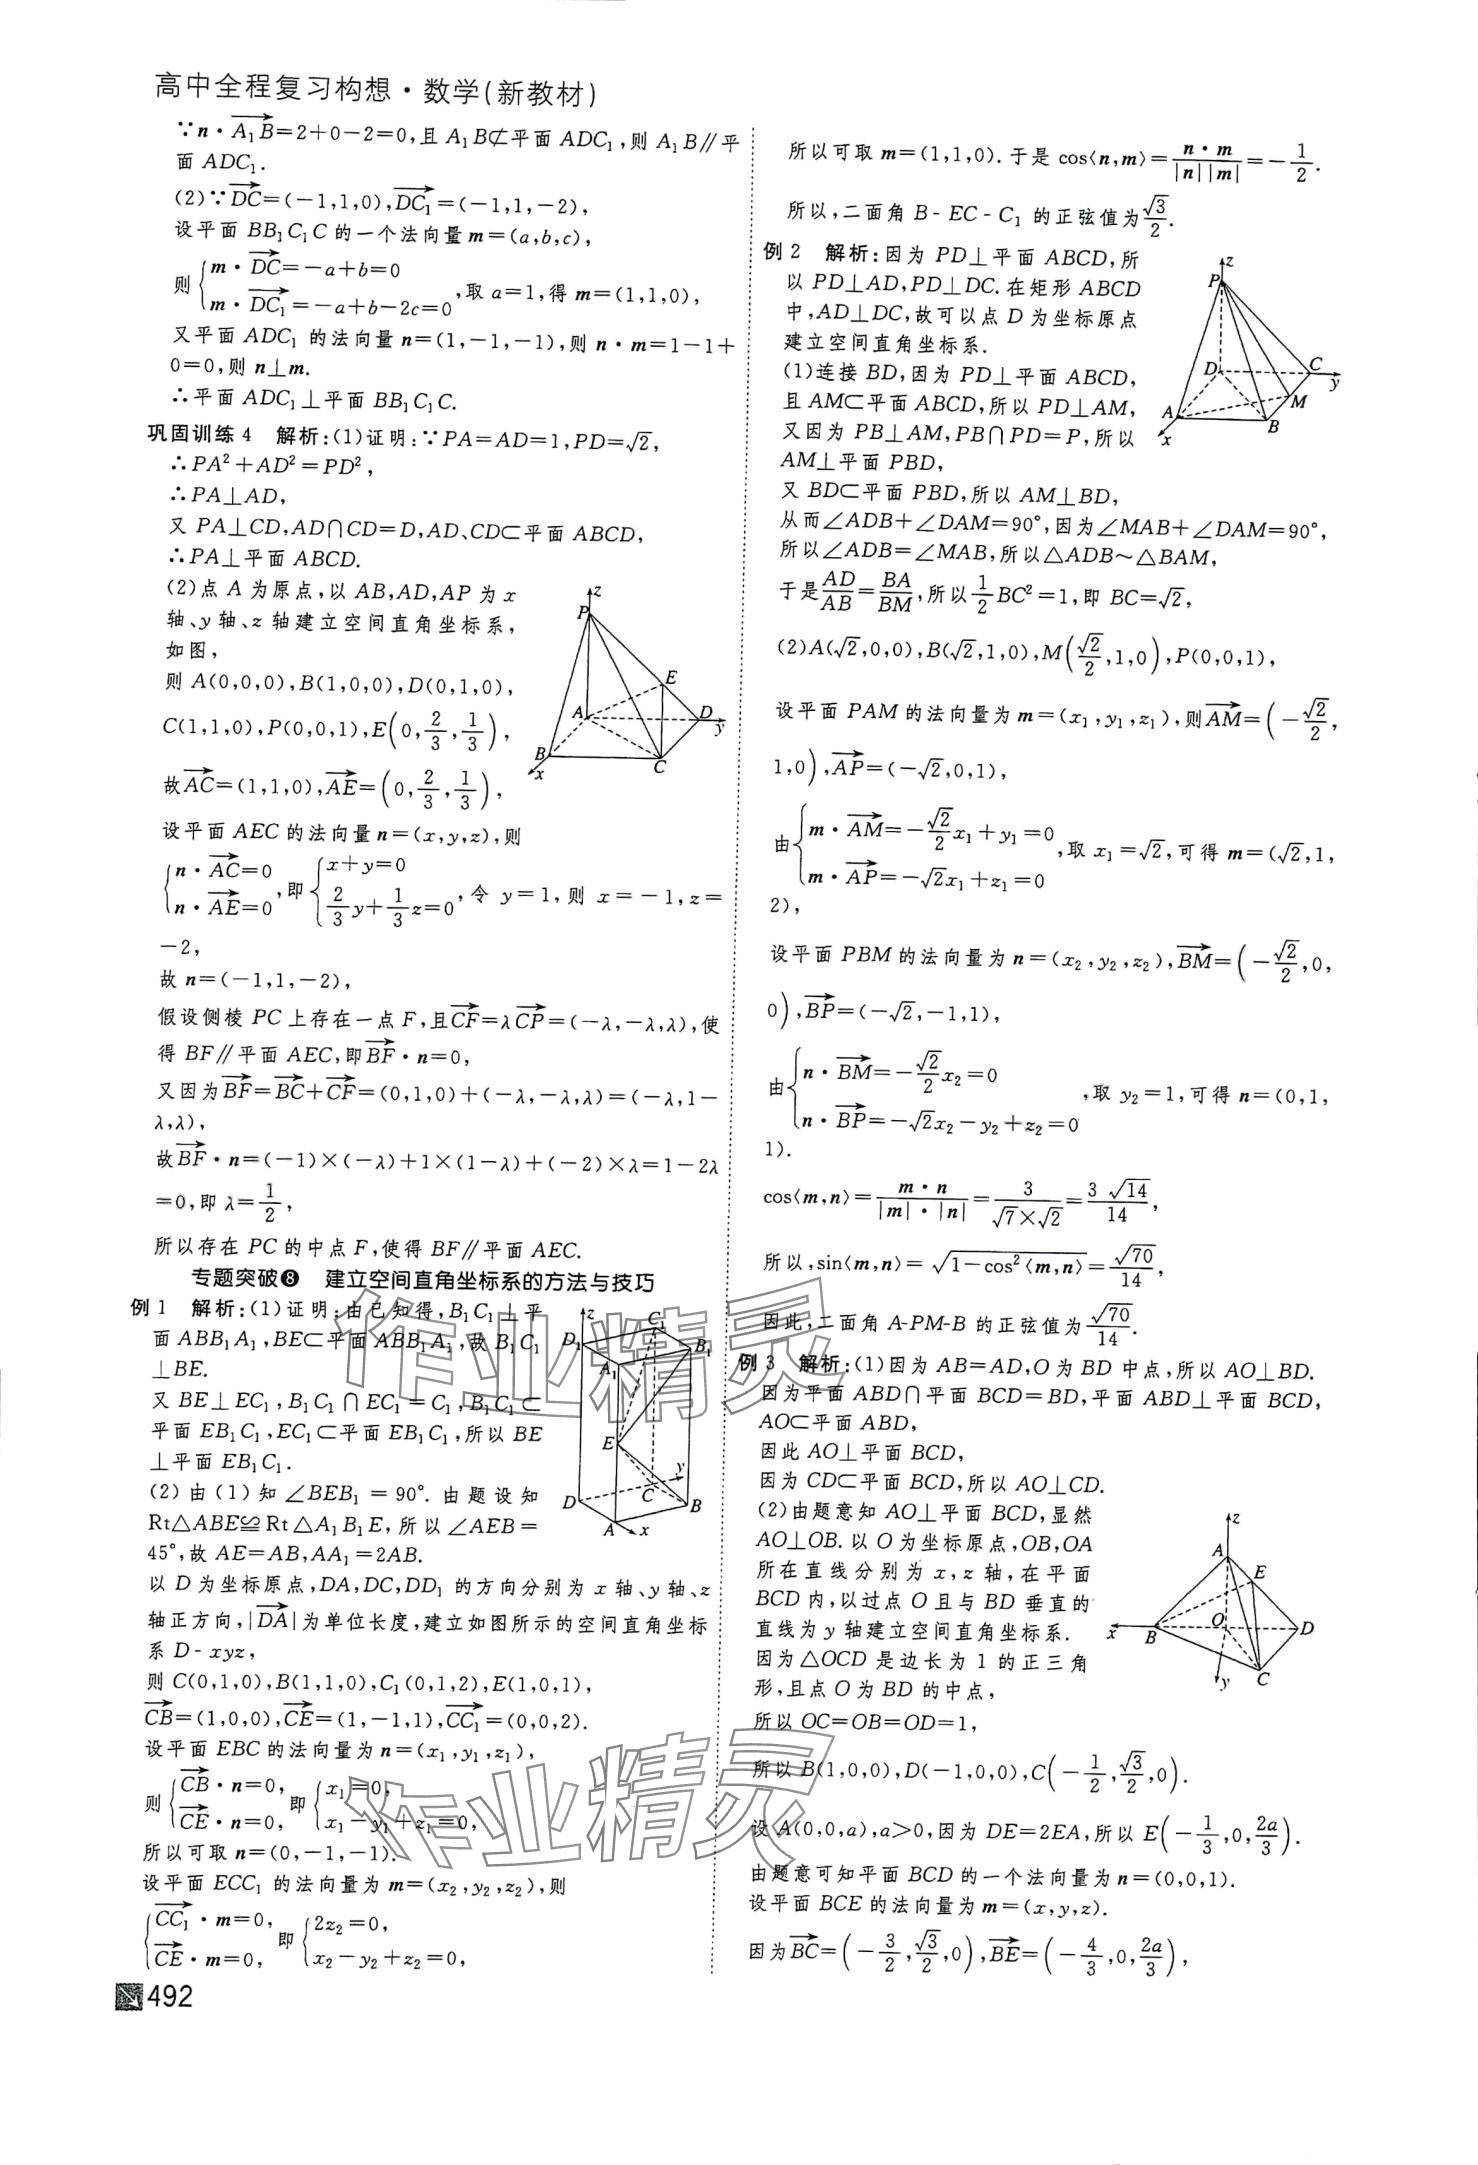 高中全程复习构想·数学(新教材)
∵n·A₁B→=2+0-2=0,且 A₁B⊄平面 ADC₁,则 A₁B∥平
面 ADC₁.
(2)∵DC→=(-1,1,0),DC₁→=(-1,1,-2),
设平面 BB₁C₁C 的一个法向量 m=(a,b,c),
则{m·DC→=-a+b=0
m·DC₁→=-a+b-2c=0,取 a=1,得 m=(1,1,0),
又平面 ADC₁ 的法向量 n=(1,-1,-1),则 n·m=1-1+
0=0,则 n⊥m.
∴平面 ADC₁⊥平面 BB₁C₁C.
巩固训练 4 解析:(1)证明:∵PA=AD=1,PD=√2,
∴PA²+AD²=PD²,
∴PA⊥AD,
又 PA⊥CD,AD∩CD=D,AD、CD⊂平面 ABCD,
∴PA⊥平面 ABCD.
(2)点 A 为原点,以 AB,AD,AP 为 x
轴、y 轴、z 轴建立空间直角坐标系,
如图,
则 A(0,0,0),B(1,0,0),D(0,1,0),
C(1,1,0),P(0,0,1),E(0,2/3,1/3),
故AC→=(1,1,0),AE→=(0,2/3,1/3),
z
P
E
A
D
y
B
C
x
设平面 AEC 的法向量 n=(x,y,z),则
{n·AC→=0
n·AE→=0,即{x+y=0
2/3y+1/3z=0,令 y=1,则 x=-1,z=
-2,
故 n=(-1,1,-2),
假设侧棱 PC 上存在一点 F,且CF→=λCP→=(-λ,-λ,λ),使
得 BF∥平面 AEC,即BF→·n=0,
又因为BF→=BC→+CF→=(0,1,0)+(-λ,-λ,λ)=(-λ,1-
λ,λ),
故BF→·n=(-1)×(-λ)+1×(1-λ)+(-2)×λ=1-2λ
=0,即 λ=1/2,
所以存在 PC 的中点 F,使得 BF∥平面 AEC.
专题突破❽ 建立空间直角坐标系的方法与技巧
例 1 解析:(1)证明:由已知得,B₁C₁⊥平
面 ABB₁A₁,BE⊂平面 ABB₁A₁,故 B₁C₁
⊥BE.
又 BE⊥EC₁,B₁C₁∩EC₁=C₁,B₁C₁⊂
平面 EB₁C₁,EC₁⊂平面 EB₁C₁,所以 BE
⊥平面 EB₁C₁.
(2)由(1)知∠BEB₁=90°.由题设知
Rt△ABE≌Rt△A₁B₁E,所以∠AEB=
45°,故 AE=AB,AA₁=2AB.
z
C₁
D₁
B₁
A₁
E
y
D
C
B
A
x
以 D 为坐标原点,DA,DC,DD₁ 的方向分别为 x 轴、y 轴、z
轴正方向,|DA→|为单位长度,建立如图所示的空间直角坐标
系 D-xyz,
则 C(0,1,0),B(1,1,0),C₁(0,1,2),E(1,0,1),
CB→=(1,0,0),CE→=(1,-1,1),CC₁→=(0,0,2).
设平面 EBC 的法向量为 n=(x₁,y₁,z₁),
则{CB→·n=0,
CE→·n=0,即{x₁=0,
x₁-y₁+z₁=0,
所以可取 n=(0,-1,-1).
设平面 ECC₁ 的法向量为 m=(x₂,y₂,z₂),则
{CC₁→·m=0,
CE→·m=0,即{2z₂=0,
x₂-y₂+z₂=0,
492
所以可取 m=(1,1,0).于是 cos⟨n,m⟩=n·m/|n||m|=-1/2.
所以,二面角 B-EC-C₁ 的正弦值为√3/2.
例 2 解析:因为 PD⊥平面 ABCD,所
以 PD⊥AD,PD⊥DC.在矩形 ABCD
中,AD⊥DC,故可以点 D 为坐标原点
建立空间直角坐标系.
(1)连接 BD,因为 PD⊥平面 ABCD,
且 AM⊂平面 ABCD,所以 PD⊥AM,
又因为 PB⊥AM,PB∩PD=P,所以
AM⊥平面 PBD,
z
P
D
C
y
M
A
B
x
又 BD⊂平面 PBD,所以 AM⊥BD,
从而∠ADB+∠DAM=90°,因为∠MAB+∠DAM=90°,
所以∠ADB=∠MAB,所以△ADB∽△BAM,
于是AD/AB=BA/BM,所以1/2BC²=1,即 BC=√2,
(2)A(√2,0,0),B(√2,1,0),M(√2/2,1,0),P(0,0,1),
设平面 PAM 的法向量为 m=(x₁,y₁,z₁),则AM→=(-√2/2,
1,0),AP→=(-√2,0,1),
由{m·AM→=-√2/2x₁+y₁=0
m·AP→=-√2x₁+z₁=0,取 x₁=√2,可得 m=(√2,1,
2),
设平面 PBM 的法向量为 n=(x₂,y₂,z₂),BM→=(-√2/2,0,
0),BP→=(-√2,-1,1),
由{n·BM→=-√2/2x₂=0
n·BP→=-√2x₂-y₂+z₂=0,取 y₂=1,可得 n=(0,1,
1).
cos⟨m,n⟩=m·n/|m|·|n|=3/√7×√2=3√14/14,
所以,sin⟨m,n⟩=√1-cos²⟨m,n⟩=√70/14,
因此,二面角 A-PM-B 的正弦值为√70/14.
例 3 解析:(1)因为 AB=AD,O 为 BD 中点,所以 AO⊥BD.
因为平面 ABD∩平面 BCD=BD,平面 ABD⊥平面 BCD,
AO⊂平面 ABD,
因此 AO⊥平面 BCD,
因为 CD⊂平面 BCD,所以 AO⊥CD.
(2)由题意知 AO⊥平面 BCD,显然
AO⊥OB.以 O 为坐标原点,OB,OA
所在直线分别为 x,z 轴,在平面
BCD 内,以过点 O 且与 BD 垂直的
直线为 y 轴建立空间直角坐标系.
因为△OCD 是边长为 1 的正三角
形,且点 O 为 BD 的中点,
所以 OC=OB=OD=1,
z
A
E
x
B
O
D
y
C
所以 B(1,0,0),D(-1,0,0),C(-1/2,√3/2,0).
设 A(0,0,a),a>0,因为 DE=2EA,所以 E(-1/3,0,2a/3).
由题意可知平面 BCD 的一个法向量为 n=(0,0,1).
设平面 BCE 的法向量为 m=(x,y,z).
因为BC→=(-3/2,√3/2,0),BE→=(-4/3,0,2a/3),
作业精灵
作业精灵